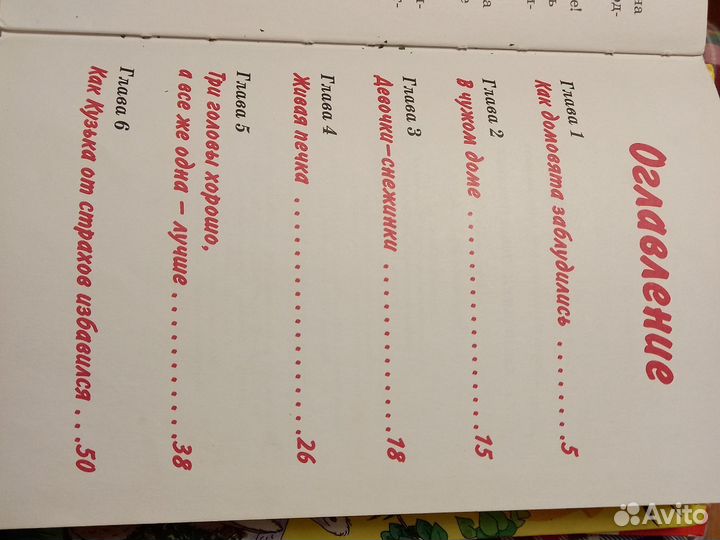 Оглавление
Глава 1
Как домовята заблудились . . . . . . . . .5
Глава 2
В чужом доме . . . . . . . . . . . . . . . . .15
Глава 3
Девочки-снежинки . . . . . . . . . . . . . .18
Глава 4
Живая печка . . . . . . . . . . . . . . . . . .26
Глава 5
Три головы хорошо,
а все же одна – лучше . . . . . . . . . . . . .38
Глава 6
Как Кузька от страхов избавился . . .50
Avito